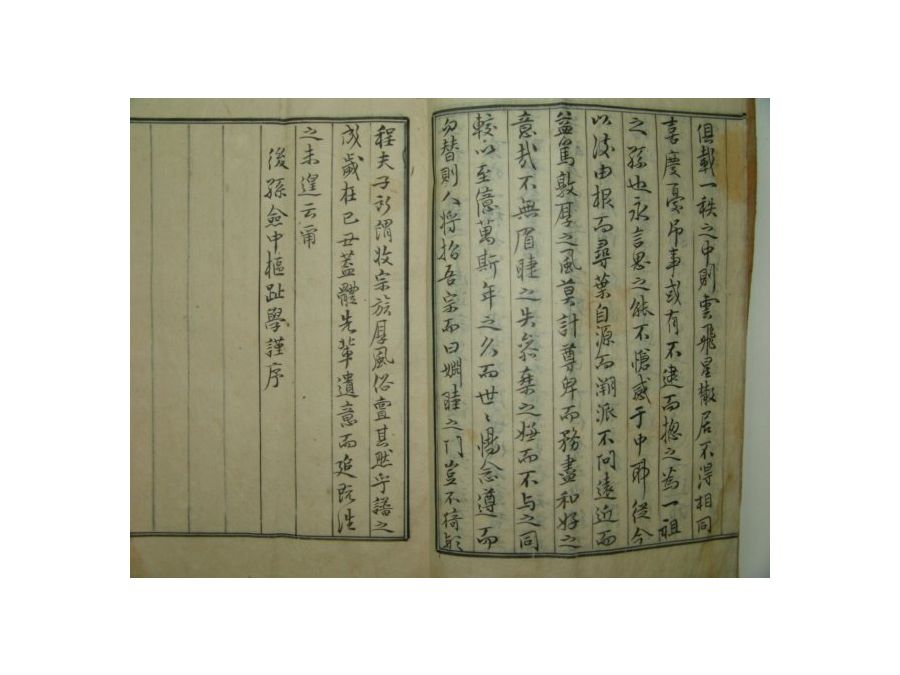 俱載一秩之中則雲飛星散居不得相同
喜慶憂吊事或有不逮而揔之爲一祖
之孫也永言思之能不愴感于中耶從今
以後由根而尋葉自源而溯派不問遠近而
益篤敦厚之風莫計尊卑而務盡和好之
意哉不無眉睫之失棄之而不与之同
較以至億萬斯年之久而世〻惕念遵而
勿替則人將指吾宗而曰婣睦之門豈不猗歟
程夫子所謂收宗族厚風俗亶其然乎譜之
成歲在己丑蓋體先輩遺意而追旣往
之未遑云甭
後孫僉中樞趾學謹序